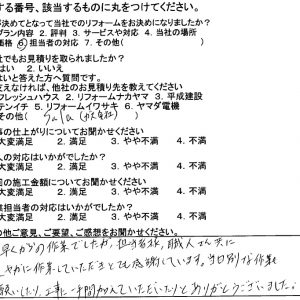 する番号、該当するものに丸をつけてください。
が決めてとなって当社でのリフォームをお決めになりましたか?
プラン内容 2. 評判 3. サービスや対応 4. 当社の場所
価格 6. 担当者の対応 7. その他(
社でもお見積りを取られましたか?
はい 2. いいえ
はいと答えた方へ質問です。
支えなければ、他社のお見積り先を教えてください
フレッシュハウス 2. リフォームナカヤマ 3. 平成建設
テンイチ 5. リフォームイワサキ 6. ヤマダ電機
その他(
事の仕上がりについてお聞かせください
大変満足 2. 満足 3. やや不満 4. 不満
人の対応はいかがでしたか?
大変満足 2. 満足 3. やや不満 4. 不満
回の施工金額についてお聞かせください
大変満足 2. 満足 3. やや不満 4. 不満
業担当者の対応はいかがでしたか?
大変満足 2. 満足 3. やや不満 4. 不満
の他ご意見、ご要望、ご感想をお聞かせください。
の作業でしたが、担当者様、職人さん共に
やかに作業していただきとても感謝しています。当日別な作業
願いしたり、工事に一手間加えていただいたりとありがとうございました。